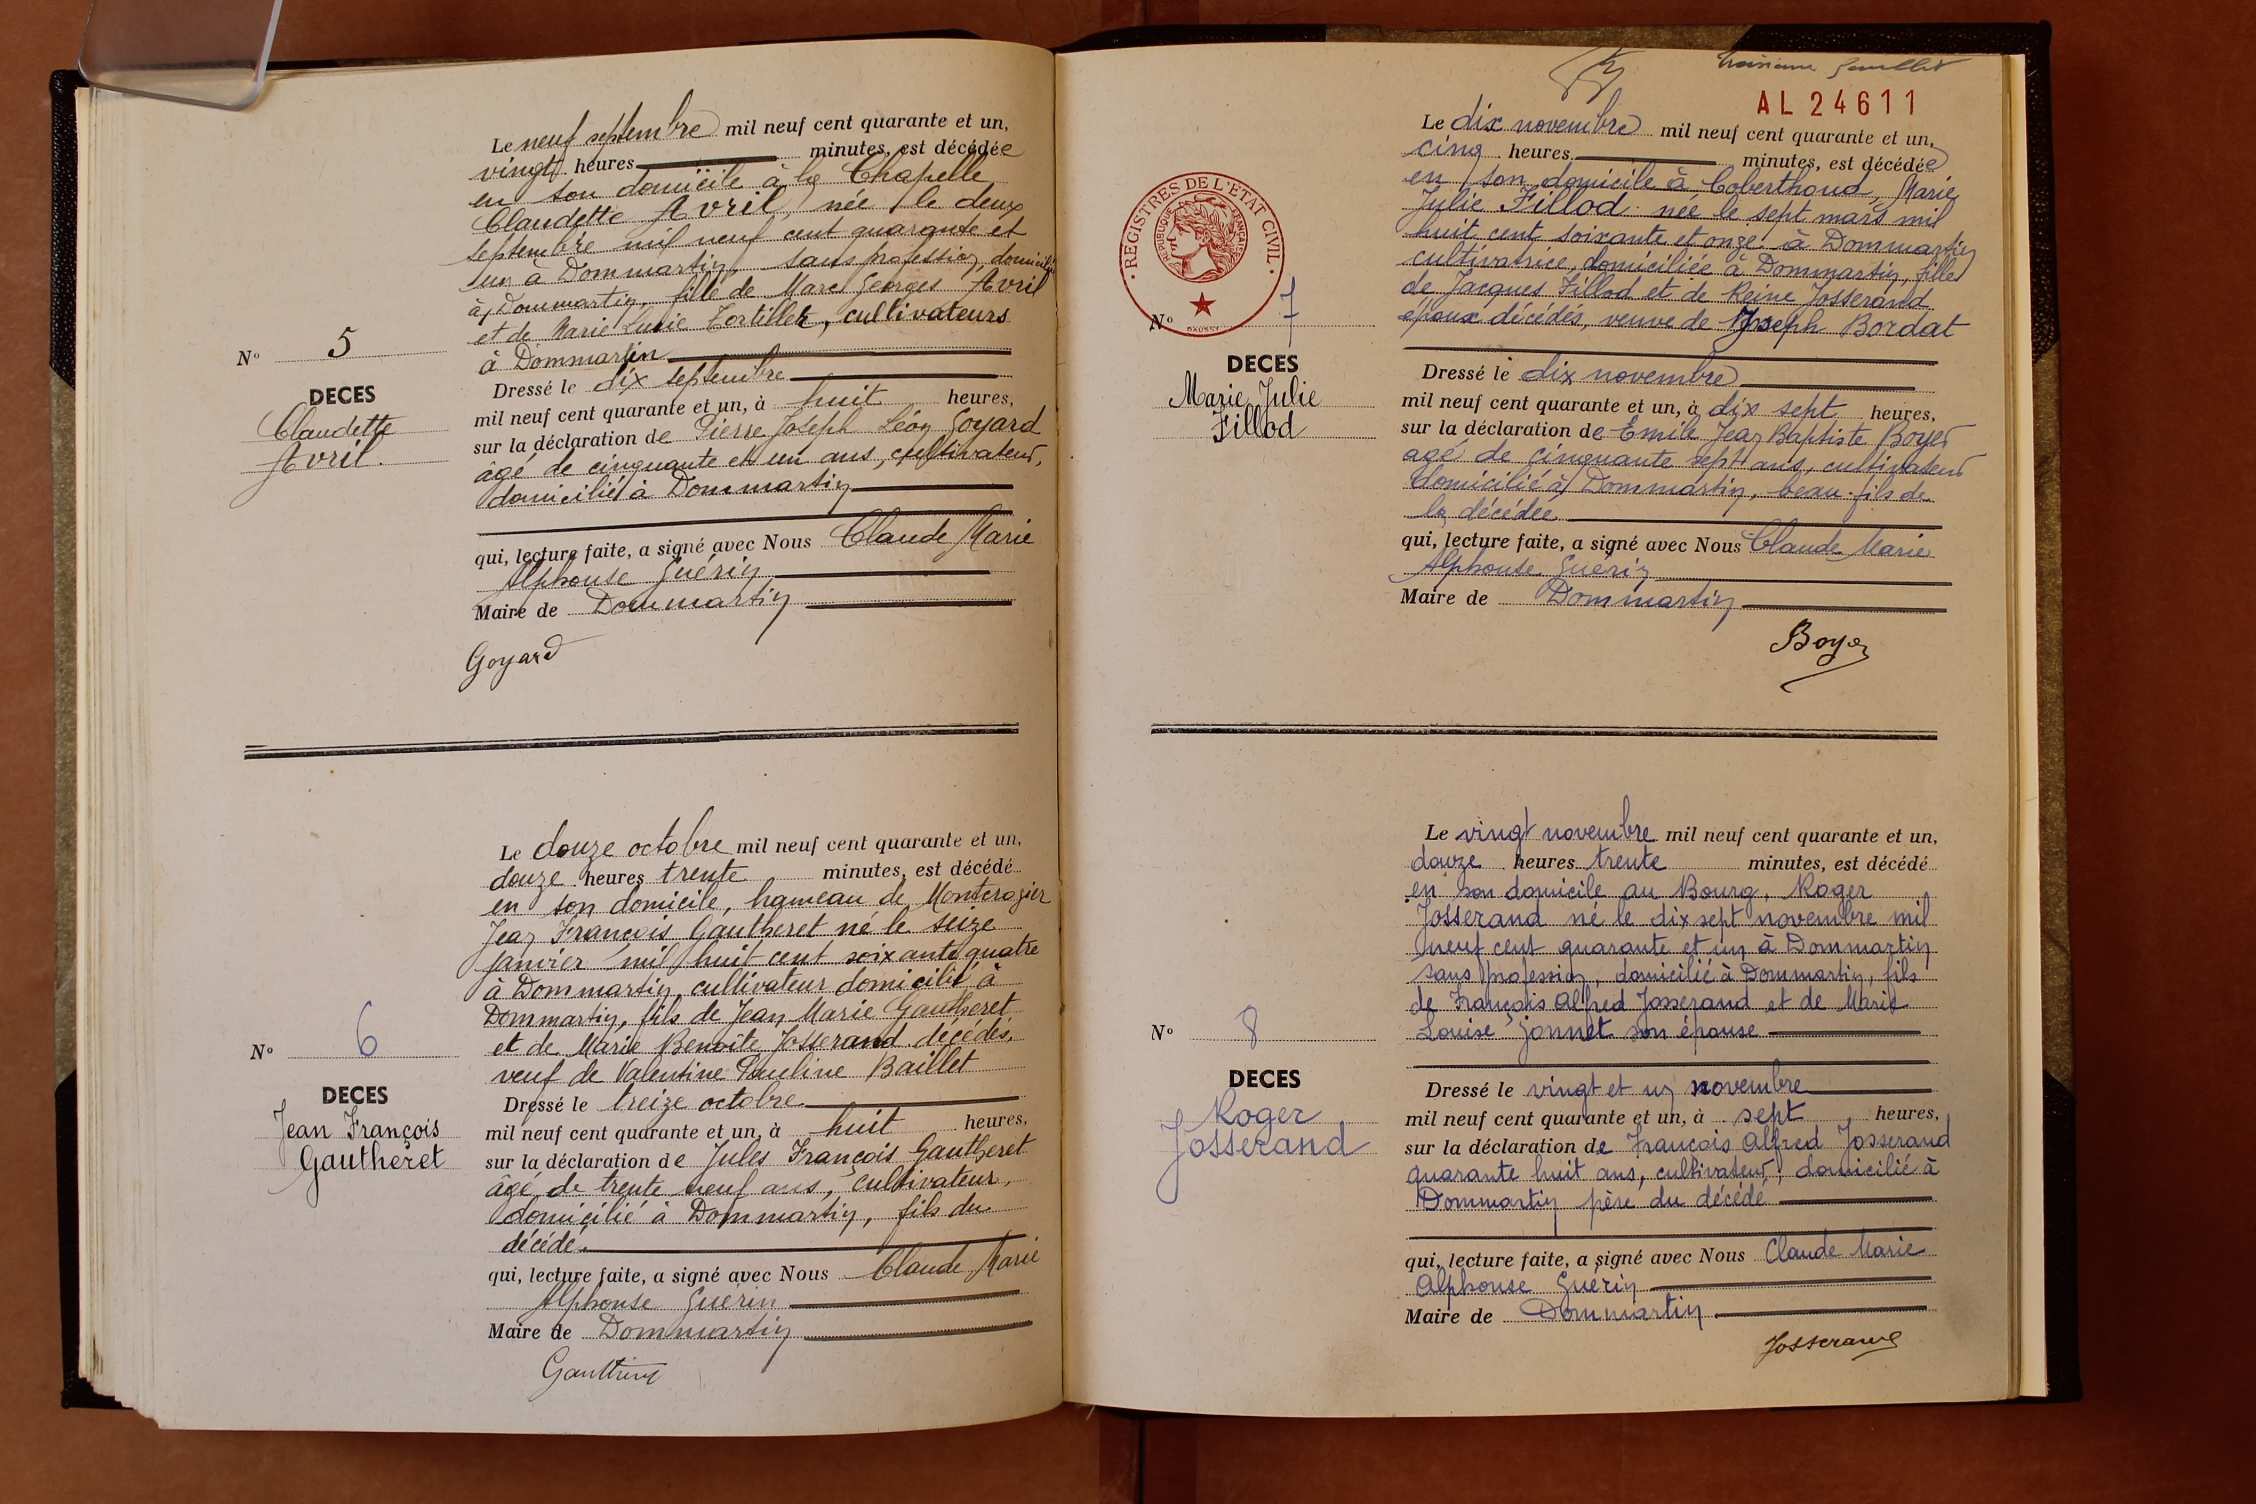 Le neuf septembre mil neuf cent quarante et un,
vingt heures minutes, est décédée
en son domicile à la Chapelle
Claudette Avril, née le deux
septembre mil neuf cent quarante et
un à Dommartin, sans profession, domiciliée
à Dommartin, fille de Marc Georges Avril
et de Marie Lucie Tortillet, cultivateurs
à Dommartin
Nº 5
DECES
Claudette
Avril.
Dressé le dix septembre
mil neuf cent quarante et un, à huit heures,
sur la déclaration de Pierre Joseph Léon Goyard
âgé de cinquante et un ans, cultivateur,
domicilié à Dommartin
qui, lecture faite, a signé avec Nous Claude Marie
Alphonse Guérin
Maire de Dommartin
Goyard
Le douze octobre mil neuf cent quarante et un,
douze heures trente minutes, est décédé
en son domicile, hameau de Monterozier
Jean François Gautheret né le seize
janvier mil huit cent soixante quatre
à Dommartin cultivateur domicilié à
Dommartin, fils de Jean Marie Gautheret
et de Marie Benoite Josserand décédés,
veuf de Valentine Pauline Baillet
Nº 6
DECES
Jean François
Gautheret
Dressé le treize octobre
mil neuf cent quarante et un, à huit heures,
sur la déclaration de Jules François Gautheret
âgé de trente neuf ans, cultivateur,
domicilié à Dommartin, fils du
décédé.
qui, lecture faite, a signé avec Nous Claude Marie
Alphonse Guérin
Maire de Dommartin
AL 24611
Le dix novembre mil neuf cent quarante et un,
cinq heures minutes, est décédée
en son domicile à Coberthoud, Marie
Julie Fillod née le sept mars mil
huit cent soixante et onze à Dommartin
cultivatrice, domiciliée à Dommartin, fille
de Jacques Fillod et de Reine Josserand
époux décédés, veuve de Joseph Bordat
REGISTRES DE L'ETAT CIVIL
REPUBLIQUE FRANÇAISE
Nº 7
DECES
Marie Julie
Fillod
Dressé le dix novembre
mil neuf cent quarante et un, à dix sept heures,
sur la déclaration de Emile Jean Baptiste Boyer
agé de cinquante sept ans, cultivateur
domicilié à Dommartin, beau-fils de
la décédée
qui, lecture faite, a signé avec Nous Claude Marie
Alphonse Guérin
Maire de Dommartin
Boyer
Le vingt novembre mil neuf cent quarante et un,
douze heures trente minutes, est décédé
en son domicile au Bourg, Roger
Josserand né le dix sept novembre mil
neuf cent quarante et un à Dommartin
sans profession, domicilié à Dommartin, fils
de François Alfred Josserand et de Marie
Louise Jonnet son épouse
Nº 8
DECES
Roger
Josserand
Dressé le vingt et un novembre
mil neuf cent quarante et un, à sept heures,
sur la déclaration de François Alfred Josserand
quarante huit ans, cultivateur, domicilié à
Dommartin père du décédé
qui, lecture faite, a signé avec Nous Claude Marie
Alphonse Guérin
Maire de Dommartin
Josserand